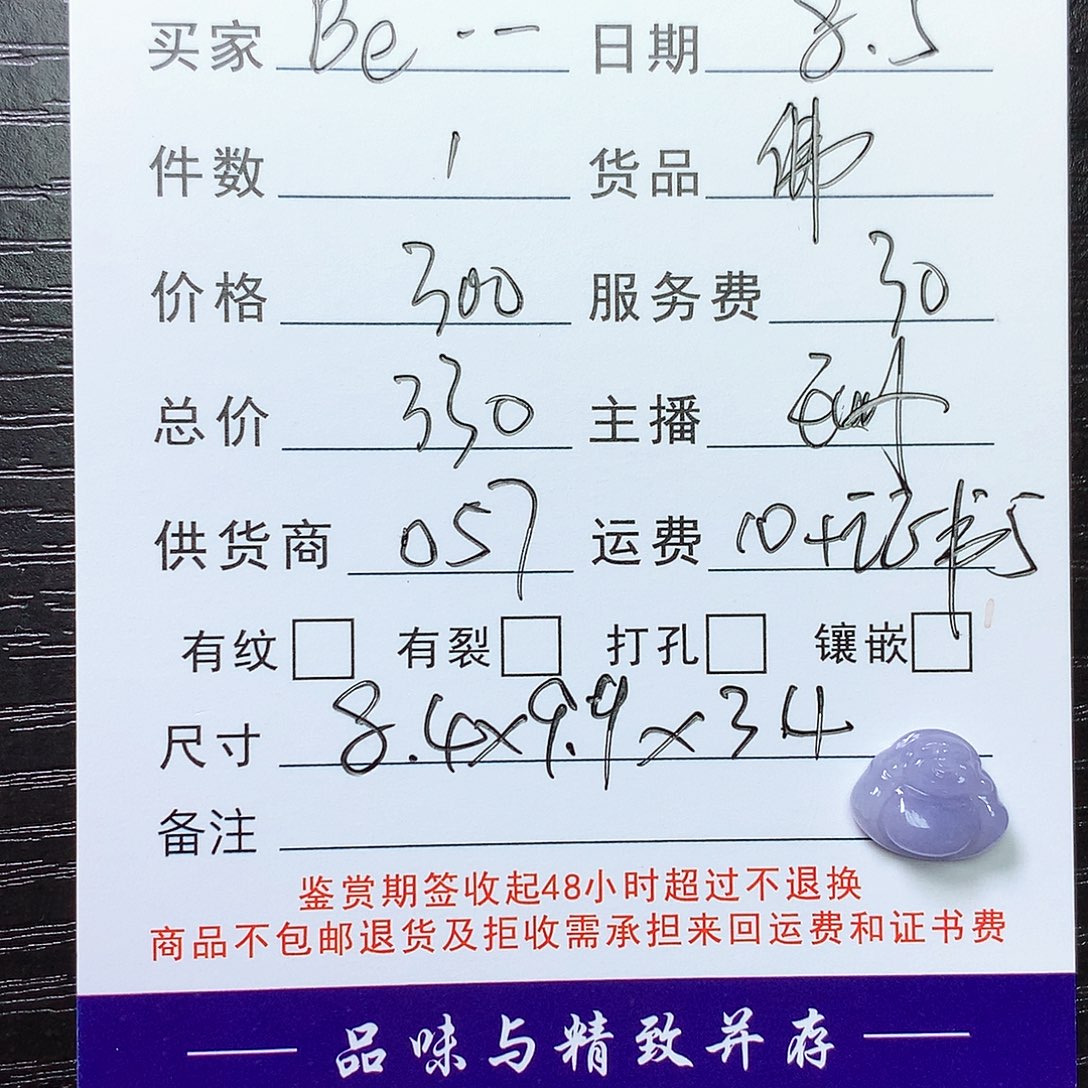 买家 Be -- 日期 8.5
件数 1 货品 佛
价格 300 服务费 30
总价 330 主播
供货商 057 运费 10+证书5
有纹 有裂 打孔 镶嵌
尺寸 8.4×9.9×3.4
备注
鉴赏期签收起48小时超过不退换
商品不包邮退货及拒收需承担来回运费和证书费
品味与精致并存